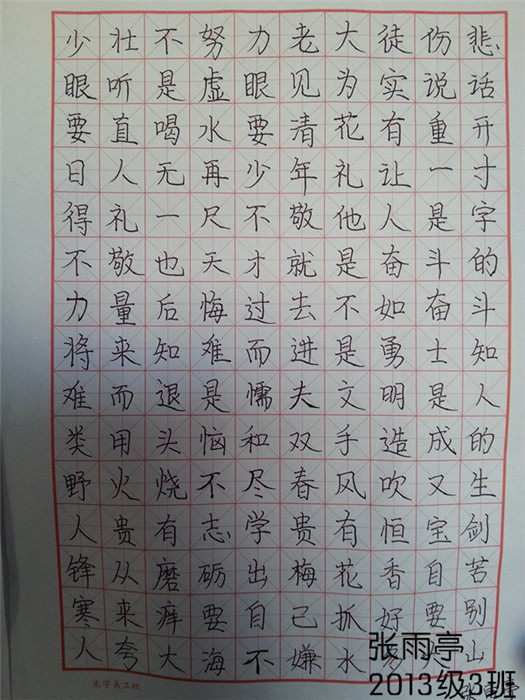 少壮不努力老大徒伤悲
眼听是虚眼见为实说话
要直喝水要清花有重开
日人无再少年礼让一寸
得礼一尺不敬他人是字
不敬也天才就是奋斗的
力量后悔过去不如奋斗
将来知难而进是勇士知
难而退是懦夫文明是人
类用头恼和双手造成的
野火烧不尽春风吹又生
人贵有志学贵有恒宝剑
锋从磨砺出梅花香自苦
寒来痒要自己抓好要别
人夸大海不嫌水山
张雨亭
2013级3班
米字美工纸